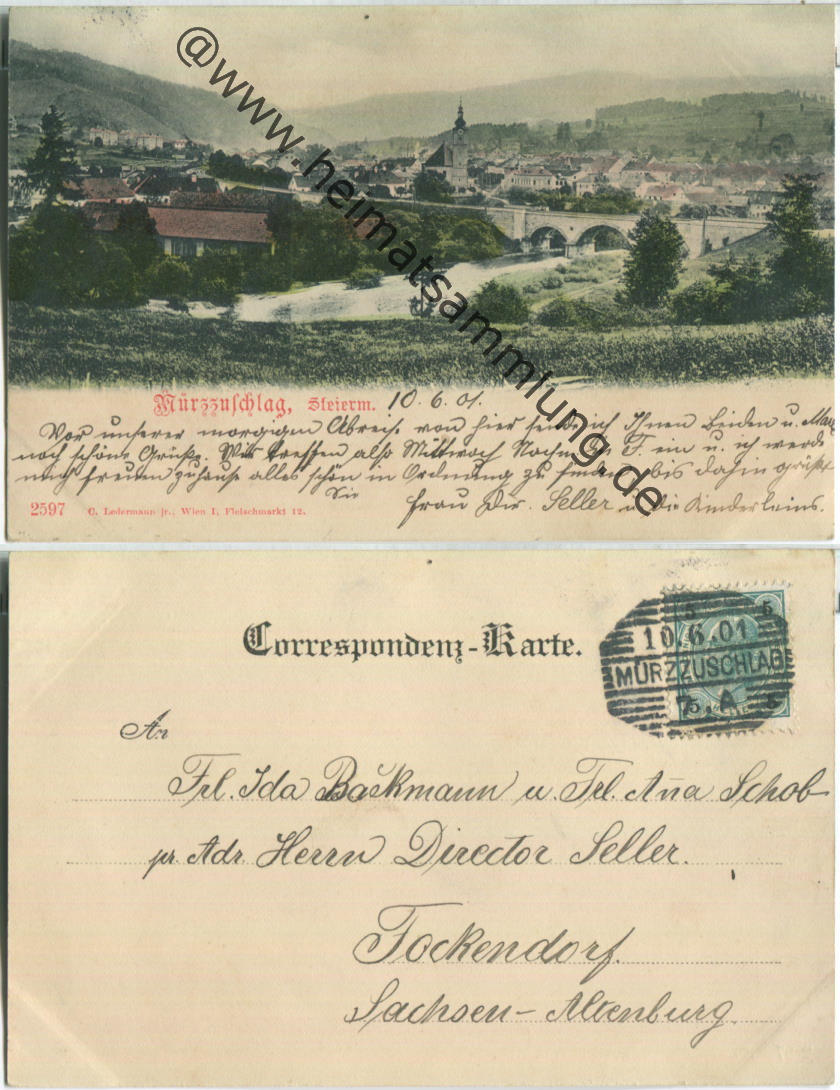 @www.heimatsammlung.de
Mürzzuschlag, Steierm. 10.6.01.
Vor unserer morgigen Abreise von hier sende ich Ihnen beiden u.
noch schöne Grüße. Wir treffen also Mittwoch Nachm. T. ein u. ich werde
mich freuen zuhause alles schön in Ordnung zu bis dahin grüßt
Sie
Frau Dir. Seller u. die Kinderleins.
2597 C. Ledermann jr., Wien I, Fleischmarkt 12.
Correspondenz-Karte.
5 5
10.6.01
MÜRZZUSCHLAG
7.A
5 5
An
Frl. Ida Backmann u. Frl. Aña Schob
pr. Adr. Herrn Director Seller.
Fockendorf.
Sachsen-Altenburg.